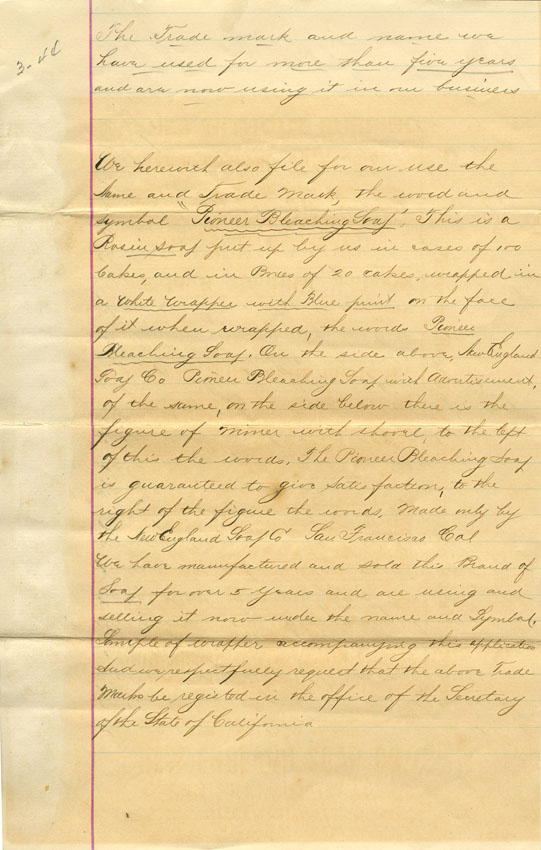 The Trade mark and name we
have used for more than five years
and are now using it in our business
We herewith also file for our use the
Name and Trade Mark, the word and
symbol "Pioneer Bleaching Soap". This is a
Rosin soap put up by us in cases of 100
Cakes, and in Boxes of 20 cakes, wrapped in
a White Wrapper with Blue print on the face
of it when wrapped, the words Pioneer
Bleaching Soap. On the side above, New England
Soap Co Pioneer Bleaching Soap with Advertisement,
of the same, on the side below there is the
figure of Miner with shovel, to the left
of this the words. The Pioneer Bleaching Soap
is guaranteed to give satisfaction, to the
right of the figure the words, Made only by
the New England Soap Co San Francisco Cal
We have manufactured and sold this Brand of
Soap for over 5 years and are using and
selling it now under the name and Symbol.
Sample of wrapper accompanying this application
And we respectfully request that the above Trade
Marks be registed in the office of the Secretary
of the State of California